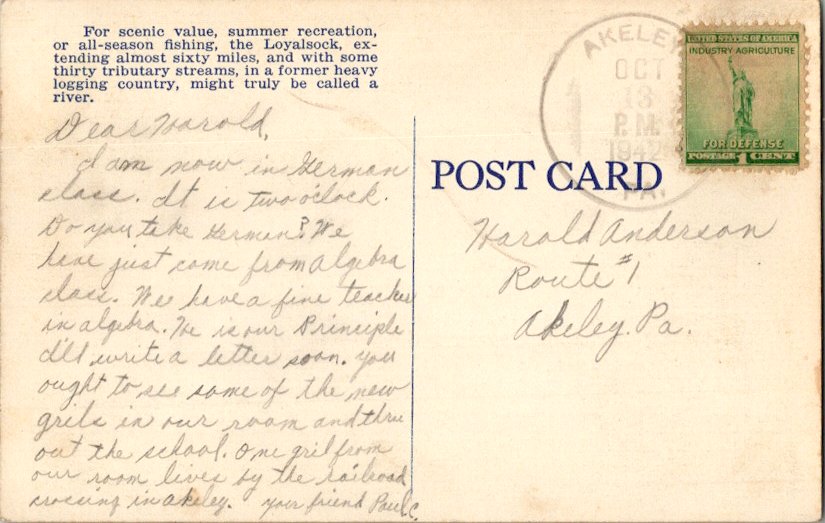 For scenic value, summer recreation,
or all-season fishing, the Loyalsock, ex-
tending almost sixty miles, and with some
thirty tributary streams, in a former heavy
logging country, might truly be called a
river.
Dear Harold,
I am now in German
class. It is two o'clock.
Do you take German? We
have just come from algebra
class. We have a fine teacher
in algebra. He is our Principle
I'll write a letter soon. You
ought to see some of the new
grils in our room and thru
out the school. One gril from
our room lives by the railroad
crossing in Akeley. Your friend Paul C.
POST CARD
AKELEY
OCT
13
P.M.
1942
PA.
UNITED STATES OF AMERICA
INDUSTRY AGRICULTURE
FOR DEFENSE
POSTAGE 1 CENT
Harold Anderson
Route #1
Akeley. Pa.